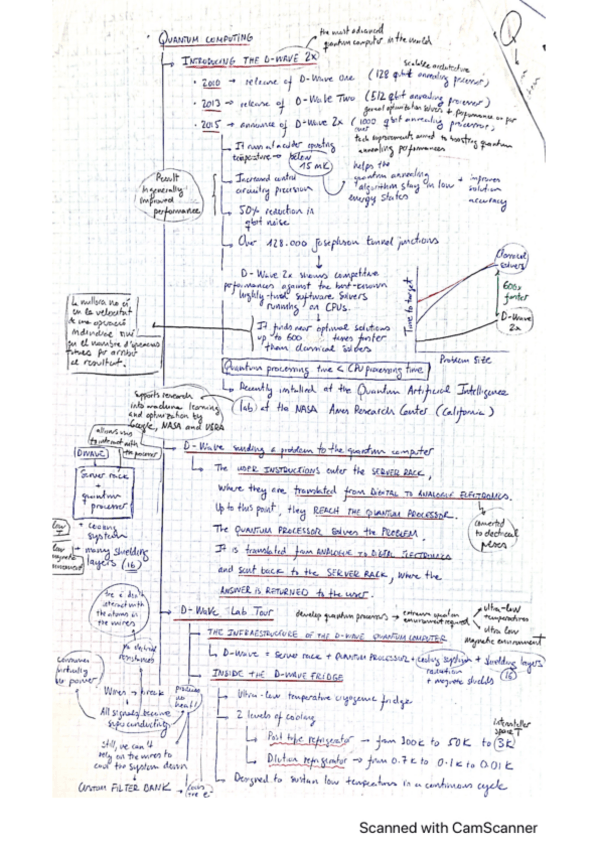 QUANTUM COMPUTING
the most advanced
quantum computer in the world
INTRODUCING THE D-WAVE 2X
scalable architecture
2010 → release of D-Wave One (128 qbit annealing processor)
2013 → release of D-Wave Two (512 qbit annealing processor)
general optimization solvers + performance on par
2015 → announce of D-Wave 2x (1000 qbit annealing processor)
tech improvements aimed to boosting quantum
annealing performances
It runs at a colder operating
temperature → below
15 mK
Increased control
circuitry precision
helps the
quantum annealing
algorithm stay in low
energy states
+ improves
solution
accuracy
50% reduction in
qbit noise
Result
in generally
improved
performance
Over 128.000 Josephson tunnel junctions
D-Wave 2x shows competitive
performances against the best-known
highly-tuned software solvers
running on CPUs.
It finds near optimal solutions
up to 600 times faster
than classical solvers
Time to target
Problem Size
Classical
solvers
600x
faster
D-Wave
2x
La millora no és
en la velocitat
de una operació
individual sinó
en el nombre d'operacions
fetes per arribar
al resultat.
Quantum processing time < CPU processing time
Recently installed at the Quantum Artificial Intelligence
lab at the NASA Ames Research Center (California)
Supports research
into machine learning
and optimization by
Google, NASA and USRA
D-Wave sending a problem to the quantum computer
The USER INSTRUCTIONS enter the SERVER RACK,
where they are translated from DIGITAL TO ANALOGUE ELECTRONICS.
Up to this point, they REACH THE QUANTUM PROCESSOR.
The QUANTUM PROCESSOR solves the PROBLEM.
It is translated from ANALOGUE TO DIGITAL ELECTRONICS
and sent back to the SERVER RACK, where the
ANSWER IS RETURNED to the user.
converted
to electrical
pulses
allows us
to interact with
the processor
DWAVE
Server rack
+
quantum
processor
low T
+ cooling
system
low
magnetic
environment
+ many shielding
layers (16)
D-Wave Lab Tour
develop quantum processors → extreme operation
environment required
ultra-low
temperatures
ultra low
magnetic environment
THE INFRASTRUCTURE OF THE D-WAVE QUANTUM COMPUTER
D-Wave = Server rack + QUANTUM PROCESSOR + cooling system + shielding layers
(16)
+ magnetic shields
INSIDE THE D-WAVE FRIDGE
Ultra-low temperature cryogenic fridge
2 levels of cooling
interstellar
space T
Post tube refrigerator → from 300K to 50K to 3K
Dilution refrigerator → from 0.7K to 0.1K to 0.01K
Designed to sustain low temperatures in a continuous cycle
the e⁻ don't
interact with
the atoms in
the wires
no
resistances
consumes
virtually
no power
Wires
All signals become
superconducting
produces
no
heat!
Still, we can't
rely on the wires to
cool the system down
CUSTOM FILTER BANK
Scanned with CamScanner